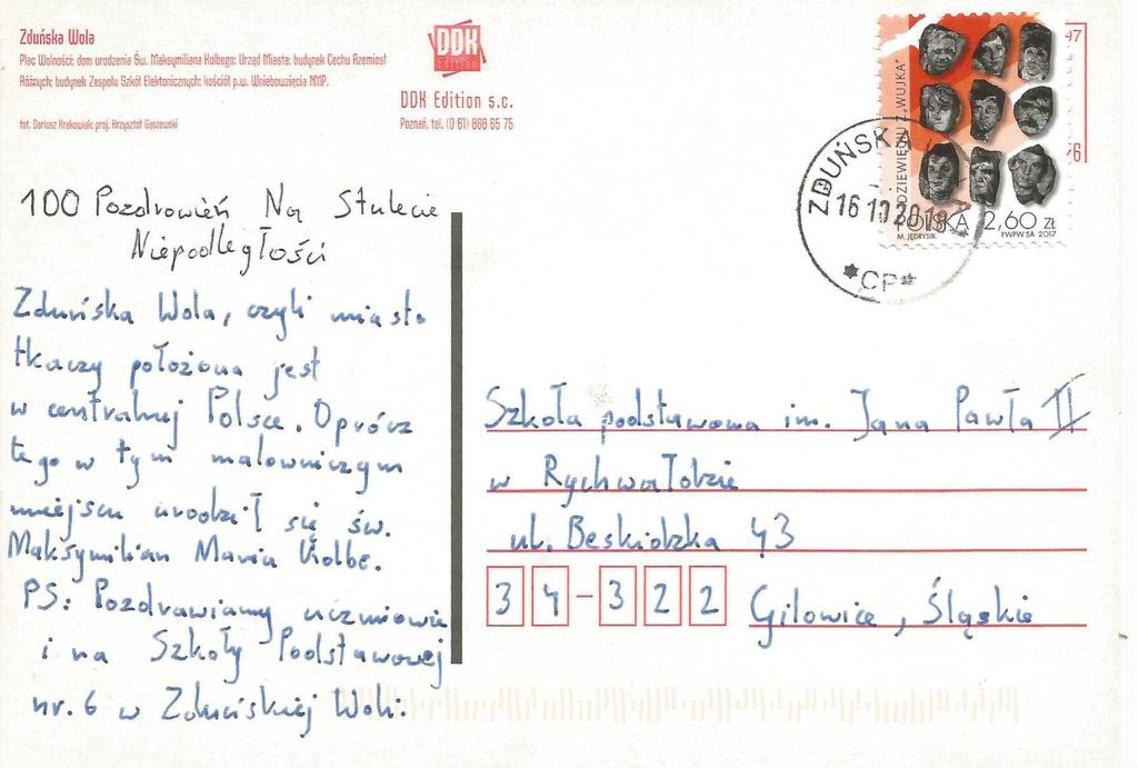 Zduńska Wola
Plac Wolności: dom urodzenia Św. Maksymiliana Kolbego: Urząd Miasta: budynek Cechu Rzemiosł
Różnych: budynek Zespołu Szkół Elektonicznych: kościół p.w. Wniebowzięcia NMP.
fot. Dariusz Krakowiak; proj. Krzysztof Gąszewski
DDK
Edition
DDK Edition s.c.
Poznań, tel. (0 61) 866 65 75
100 Pozdrowień Na Stulecie
Niepodległości
Zduńska Wola, czyli miasto
tkaczy położona jest
w centralnej Polsce. Oprócz
tego w tym malowniczym
miejscu urodził się św.
Maksymilian Maria Kolbe.
PS: Pozdrawiamy uczniowie
i na Szkoły Podstawowej
nr. 6 w Zduńskiej Woli.
DZIEWIĘCIU Z „WUJKA”
POLSKA 2,60 ZŁ
M. JĘDRYSIK PWPW SA 2017
97
ZDUŃSKA
16 10 2018
*CP*
Szkoła podstawowa im. Jana Pawła II
w Rychwałdzie
ul. Beskidzka 43
34-322 Gilowice, Śląskie